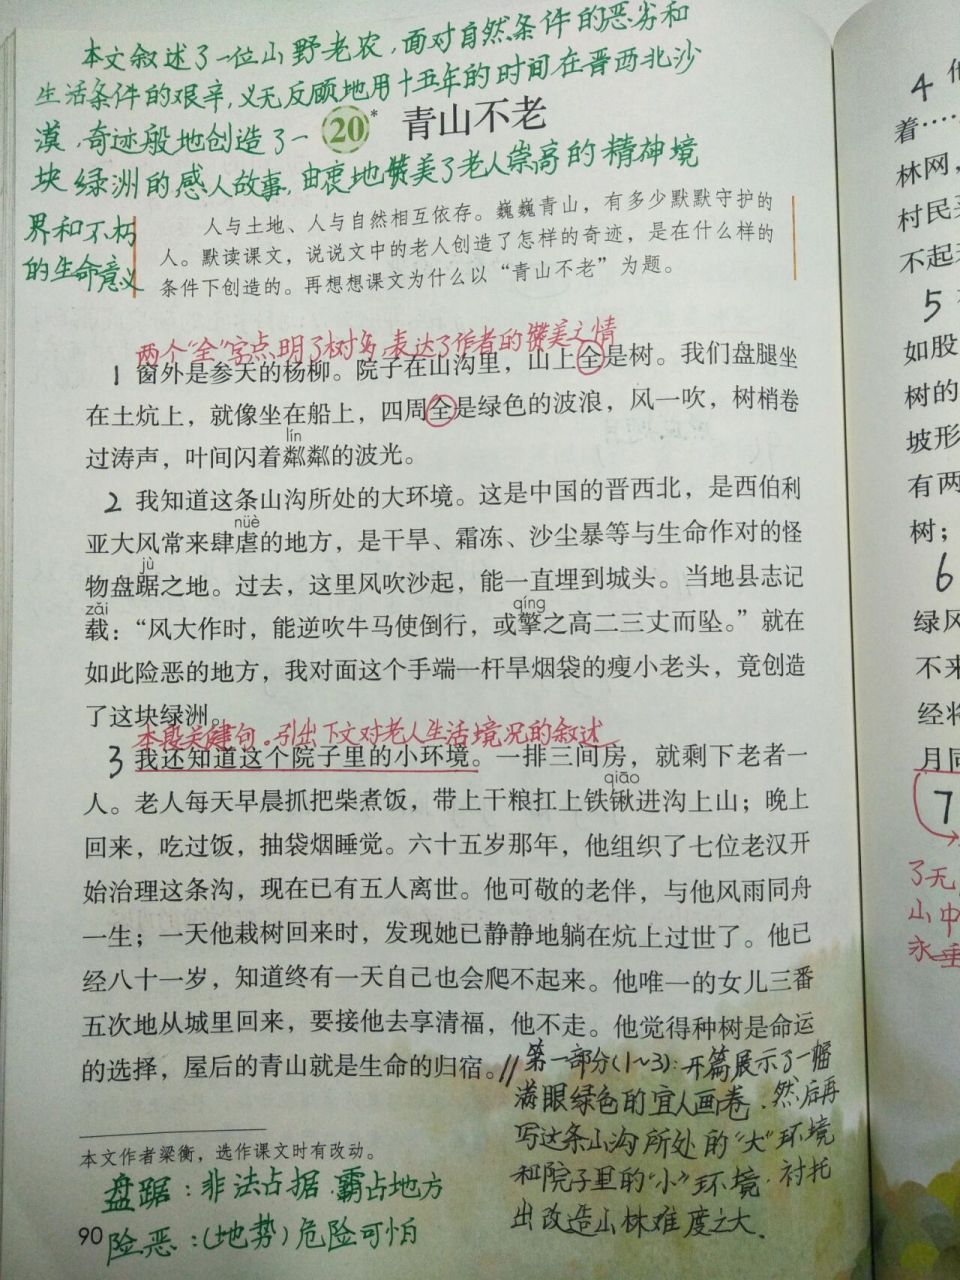 本文叙述了一位山野老农,面对自然条件的恶劣和
生活条件的艰辛,义无反顾地用十五年的时间在晋西北沙
漠,奇迹般地创造了一
块绿洲的感人故事,由衷地赞美了老人崇高的精神境
界和不朽
的生命意义
20* 青山不老
人与土地、人与自然相互依存。巍巍青山,有多少默默守护的
人。默读课文,说说文中的老人创造了怎样的奇迹,是在什么样的
条件下创造的。再想想课文为什么以“青山不老”为题。
两个“全”字点明了树多,表达了作者的赞美之情
1 窗外是参天的杨柳。院子在山沟里,山上全是树。我们盘腿坐
在土炕上,就像坐在船上,四周全是绿色的波浪,风一吹,树梢卷
lín
过涛声,叶间闪着粼粼的波光。
2 我知道这条山沟所处的大环境。这是中国的晋西北,是西伯利
nüè
亚大风常来肆虐的地方,是干旱、霜冻、沙尘暴等与生命作对的怪
jù
物盘踞之地。过去,这里风吹沙起,能一直埋到城头。当地县志记
zǎi qíng
载:“风大作时,能逆吹牛马使倒行,或擎之高二三丈而坠。”就在
如此险恶的地方,我对面这个手端一杆旱烟袋的瘦小老头,竟创造
了这块绿洲。
本段关键句。引出下文对老人生活境况的叙述
3 我还知道这个院子里的小环境。一排三间房,就剩下老者一
qiāo
人。老人每天早晨抓把柴煮饭,带上干粮扛上铁锹进沟上山;晚上
回来,吃过饭,抽袋烟睡觉。六十五岁那年,他组织了七位老汉开
始治理这条沟,现在已有五人离世。他可敬的老伴,与他风雨同舟
一生;一天他栽树回来时,发现她已静静地躺在炕上过世了。他已
经八十一岁,知道终有一天自己也会爬不起来。他唯一的女儿三番
五次地从城里回来,要接他去享清福,他不走。他觉得种树是命运
的选择,屋后的青山就是生命的归宿。//
第一部分(1~3):开篇展示了一幅
满眼绿色的宜人画卷,然后再
写这条山沟所处的“大”环境
和院子里的“小”环境,衬托
出改造山林难度之大.
本文作者梁衡,选作课文时有改动。
盘踞:非法占据,霸占地方
险恶:(地势)危险可怕
90
4
着……
林网,
村民
不起
5
如股
树的
坡形
有两
树;
6
绿风
不来
经将
月同
7
了无
山中
永垂